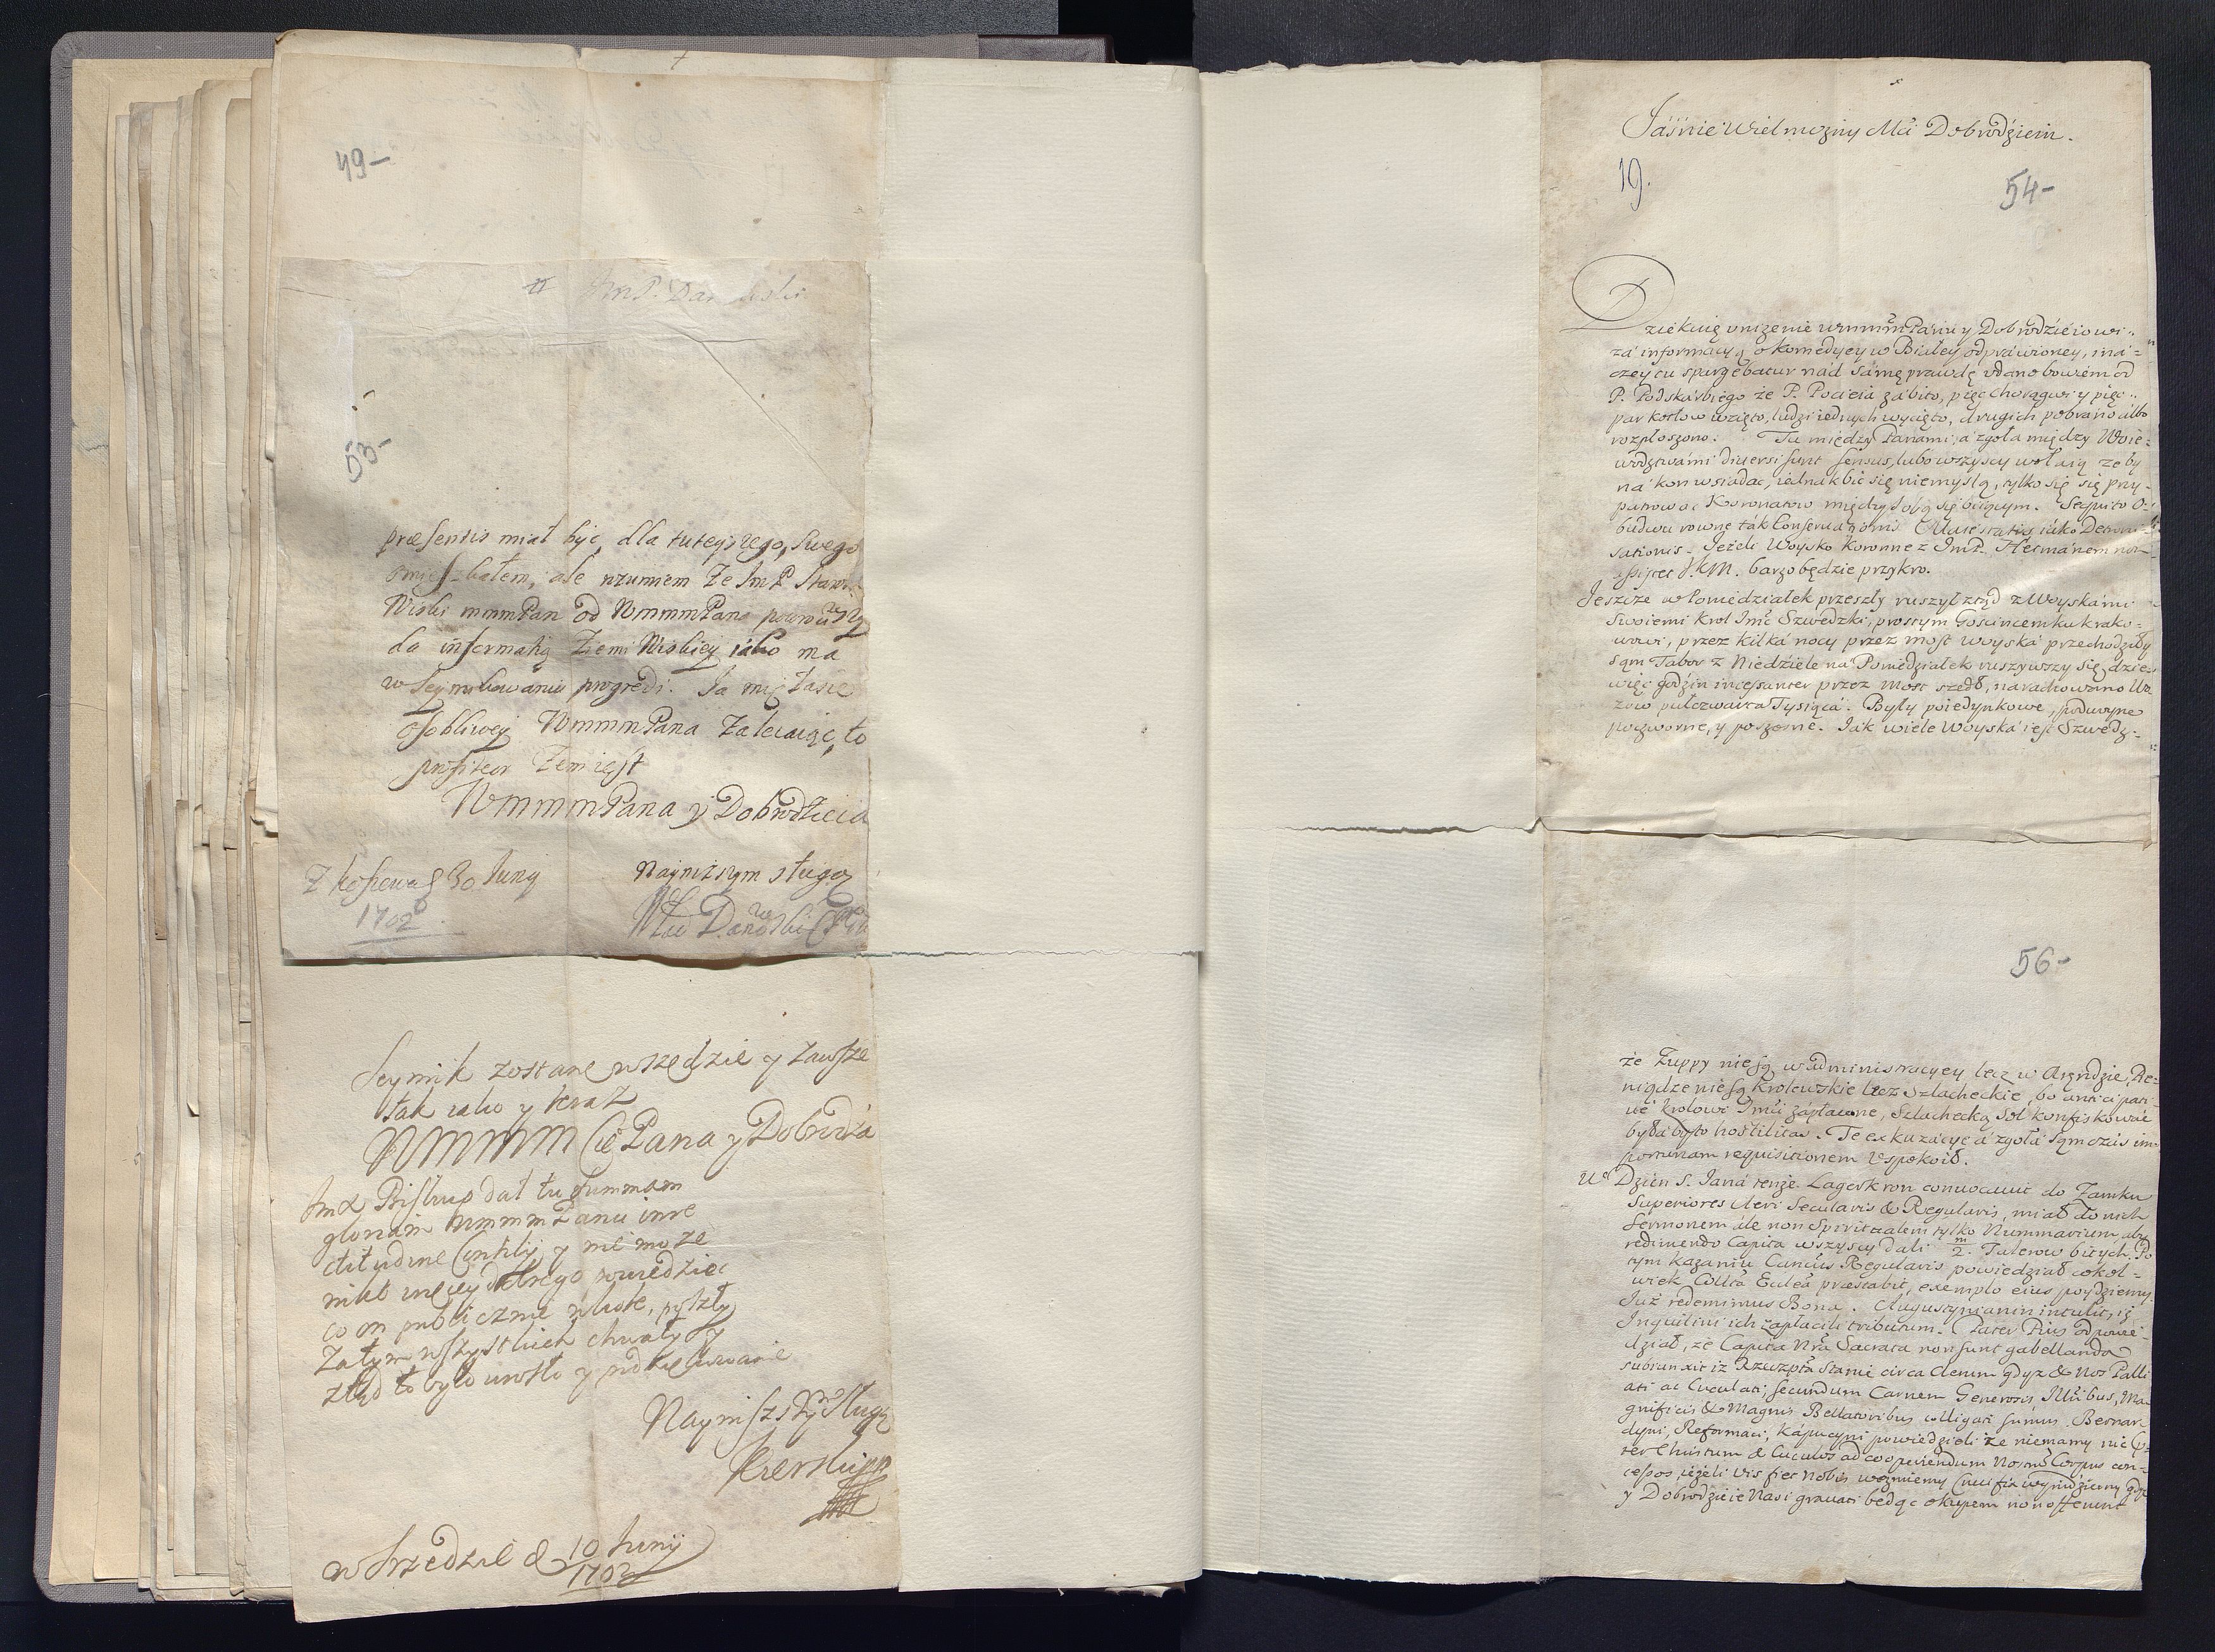 49-
53-
præsentis miał być, dla tuteyszego, swego
omieszkałem, ale rozumiem że Im P Staro
Wiski mmmPan od WmmmPana powróciwszy
da informatią Ziemi Wiskiey iako ma
w Seymikowaniu progredi. Ja mię łasce
osobliwey WmmmPana zalecaiąc, to
profiteor żem iest
WmmmPana y Dobrodzieia
Z Koszewa d 30 Junij
1702
Nayniższym sługą
Seymik zostane wszędzie y zawsze
tak iako y teraz
WMMMM Pana y Dobrodza
Im X Biskup dał tu summam
gloriam WmmmPanu in re
ctitudine Consilij, y nie może
nikt więcey dobrego powiedzieć
co on publicznie w kole, poszły
zatym wszystkich chwały y
ztąd to było urosło y podziękowanie
Nayniższy Sługa
w Srzedzie d 10 Junij
1702
Jaśnie Wielmożny Mći Dobrodzieiu.
19.
54-
Dziekuię uniżenie WmmmPanu y Dobrodzieiowi
za informacyą o Komedyey w Białey odprawioney, ina=
czey tu spargebatur nad samę prawdę udano bowiem od
P. Podskarbiego że P. Pocieia zabito, pięć chorągwi y pięć
par kotłow wzięto, ludzi iednych wycięto, drugich pobrano albo
rozpłoszono. Tu między Panami, a zgoła między Woie=
wodztwami diversi sunt sensus, lubo wszyscy wołaią żeby
na kon wsiadac, iednak bić się nie myslą, tylko się przy=
patrować Koronatow między sobą się biiącym. Sequito O=
budwu rowne tak Conservationis Maiestatis iako Dethroni=
sationis. Jeżeli Woysko Koronne z ImP. Hetmanem non
assistet J.K.M. barzo będzie przykro.
Jeszcze w Poniedziałek przeszły ruszył ztąd z Woyskami
Swoiemi Krol Imć Szwedzki, prostym Gościncem ku Krako=
wowi, przez kilka nocy przez most woyska przechodziły
sąm Tabor z Niedziele na Poniedziałek ruszywszy się dzie=
więć godzin incessanter przez most szedł, narachowano Wo
zow pułczwarta Tysiąca. Były poiedynkowe, podwoyne
poczworne, y poszosne. Jak wiele Woyska iest Szwedz=
56-
że Żuppy nie są w administracyey lecz w Arendzie, Pe=
niądze nie są Krolewskie lecz Szlacheckie, bo antici pati=
ve Krolowi Imći zapłacone, Szlachecką Sol konfiskować
byłaby to hostilitas. Te exkuzacye a zgoła sąm czas im
portunam requisitionem uspokoił.
We Dzien S. Jana tenże Lagerkron convocavit do Zamku
Superiores Cleri Secularis & Regularis, miał do nich
Sermonem ale non Spiritualem tylko Nummarium, aby
redimendo Capita wszyscy dali 2. m Talerow bitych. Po
tym kazaniu Cunctus Regularis powiedział cokol=
wiek Collta Ecclea præstabit, exemplo eius poydziemy.
Już redemimus Bona. Augustynianin intulit, iż
Inquilini ich zapłacili tributum. Pater Pius odpowie=
dział, że Capita Nra Sacrata non sunt gabellanda
subiunxit iż Rzeczpta stanie circa Clerum gdyz & Nos Palli
ati ac Cuculati, secundum Carnem Generosis, Illribus, Ma
gnificis & Magnis Bellatoribus colligati sumus. Bernar
dyni, Reformaci, Kapucyni powiedzieli że niemamy nic p=
ter Christum & Cuculos ad cooperiendum Nostrum Corpus con=
cessos, ieżeli vis fiet nobis weźmiemy Crucifix wynidziemy gdyż
y Dobrodzieie Nasi gravati będąc okupem non offerunt